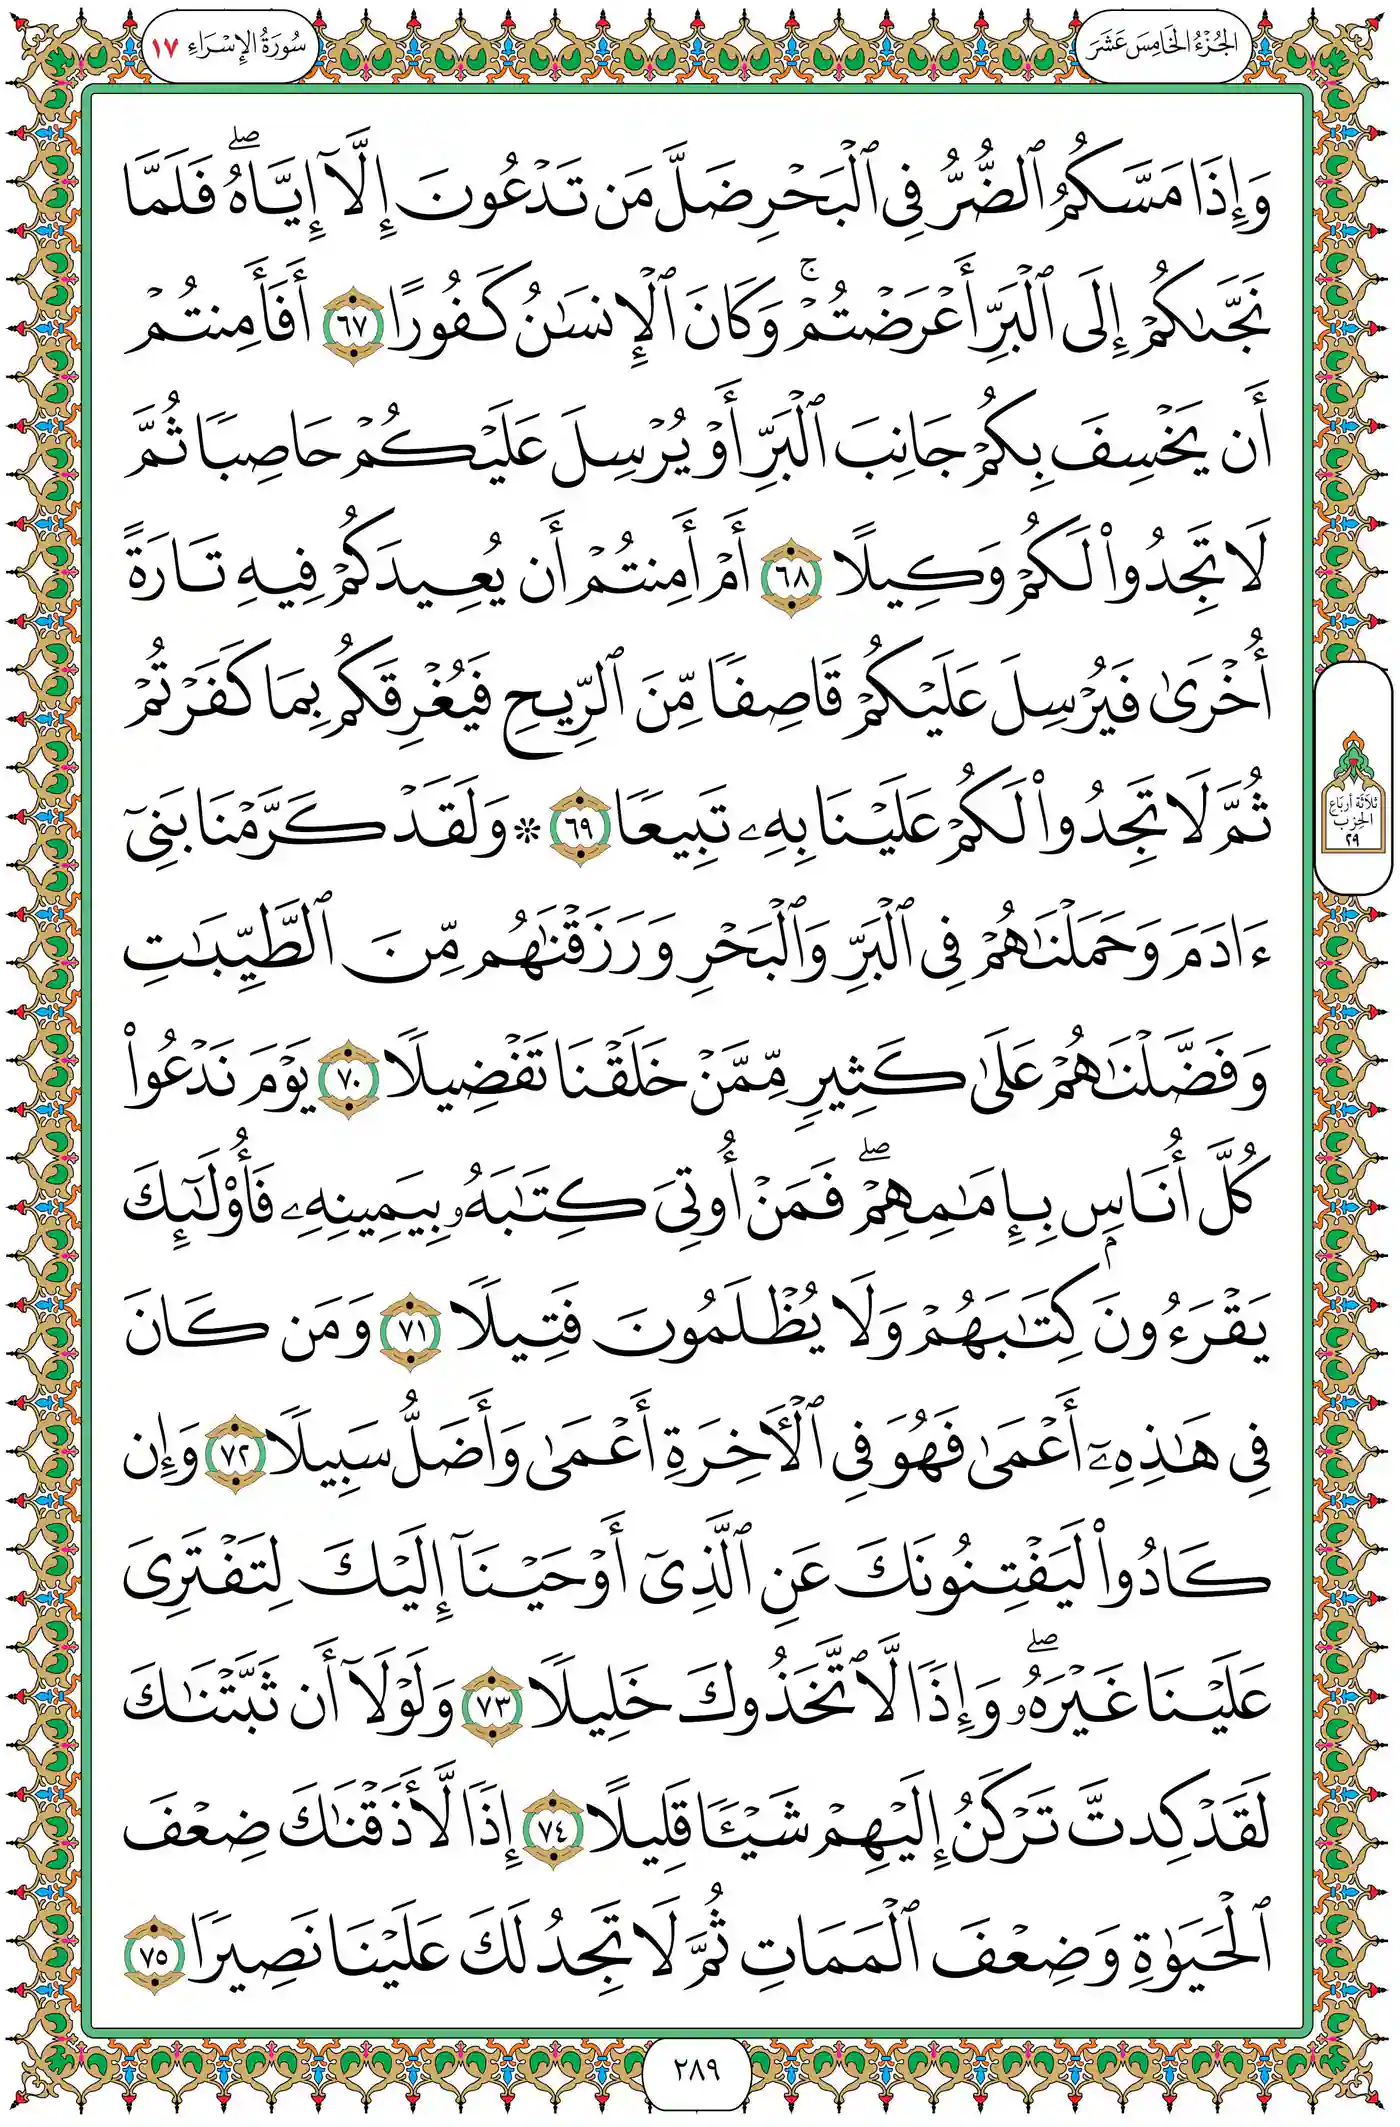 الجُزْءُ الخَامِسَ عَشَرَ
سُورَةُ الإِسْرَاءِ ١٧
وَإِذَا مَسَّكُمُ ٱلضُّرُّ فِي ٱلۡبَحۡرِ ضَلَّ مَن تَدۡعُونَ إِلَّآ إِيَّاهُۖ فَلَمَّا
نَجَّىٰكُمۡ إِلَى ٱلۡبَرِّ أَعۡرَضۡتُمۡۚ وَكَانَ ٱلۡإِنسَٰنُ كَفُورًا ٦٧ أَفَأَمِنتُمۡ
أَن يَخۡسِفَ بِكُمۡ جَانِبَ ٱلۡبَرِّ أَوۡ يُرۡسِلَ عَلَيۡكُمۡ حَاصِبٗا ثُمَّ
لَا تَجِدُواْ لَكُمۡ وَكِيلًا ٦٨ أَمۡ أَمِنتُمۡ أَن يُعِيدَكُمۡ فِيهِ تَارَةً
أُخۡرَىٰ فَيُرۡسِلَ عَلَيۡكُمۡ قَاصِفٗا مِّنَ ٱلرِّيحِ فَيُغۡرِقَكُم بِمَا كَفَرۡتُمۡ
ثُمَّ لَا تَجِدُواْ لَكُمۡ عَلَيۡنَا بِهِۦ تَبِيعٗا ٦٩ ۞ وَلَقَدۡ كَرَّمۡنَا بَنِيٓ
ءَادَمَ وَحَمَلۡنَٰهُمۡ فِي ٱلۡبَرِّ وَٱلۡبَحۡرِ وَرَزَقۡنَٰهُم مِّنَ ٱلطَّيِّبَٰتِ
وَفَضَّلۡنَٰهُمۡ عَلَىٰ كَثِيرٖ مِّمَّنۡ خَلَقۡنَا تَفۡضِيلٗا ٧٠ يَوۡمَ نَدۡعُواْ
كُلَّ أُنَاسِۭ بِإِمَٰمِهِمۡۖ فَمَنۡ أُوتِيَ كِتَٰبَهُۥ بِيَمِينِهِۦ فَأُوْلَٰٓئِكَ
يَقۡرَءُونَ كِتَٰبَهُمۡ وَلَا يُظۡلَمُونَ فَتِيلٗا ٧١ وَمَن كَانَ
فِي هَٰذِهِۦٓ أَعۡمَىٰ فَهُوَ فِي ٱلۡأٓخِرَةِ أَعۡمَىٰ وَأَضَلُّ سَبِيلٗا ٧٢ وَإِن
كَادُواْ لَيَفۡتِنُونَكَ عَنِ ٱلَّذِيٓ أَوۡحَيۡنَآ إِلَيۡكَ لِتَفۡتَرِيَ
عَلَيۡنَا غَيۡرَهُۥۖ وَإِذٗا لَّٱتَّخَذُوكَ خَلِيلٗا ٧٣ وَلَوۡلَآ أَن ثَبَّتۡنَٰكَ
لَقَدۡ كِدتَّ تَرۡكَنُ إِلَيۡهِمۡ شَيۡـٔٗا قَلِيلًا ٧٤ إِذٗا لَّأَذَقۡنَٰكَ ضِعۡفَ
ٱلۡحَيَوٰةِ وَضِعۡفَ ٱلۡمَمَاتِ ثُمَّ لَا تَجِدُ لَكَ عَلَيۡنَا نَصِيرٗا ٧٥
ثلاثة أرباع
الحزب
٢٩
٢٨٩